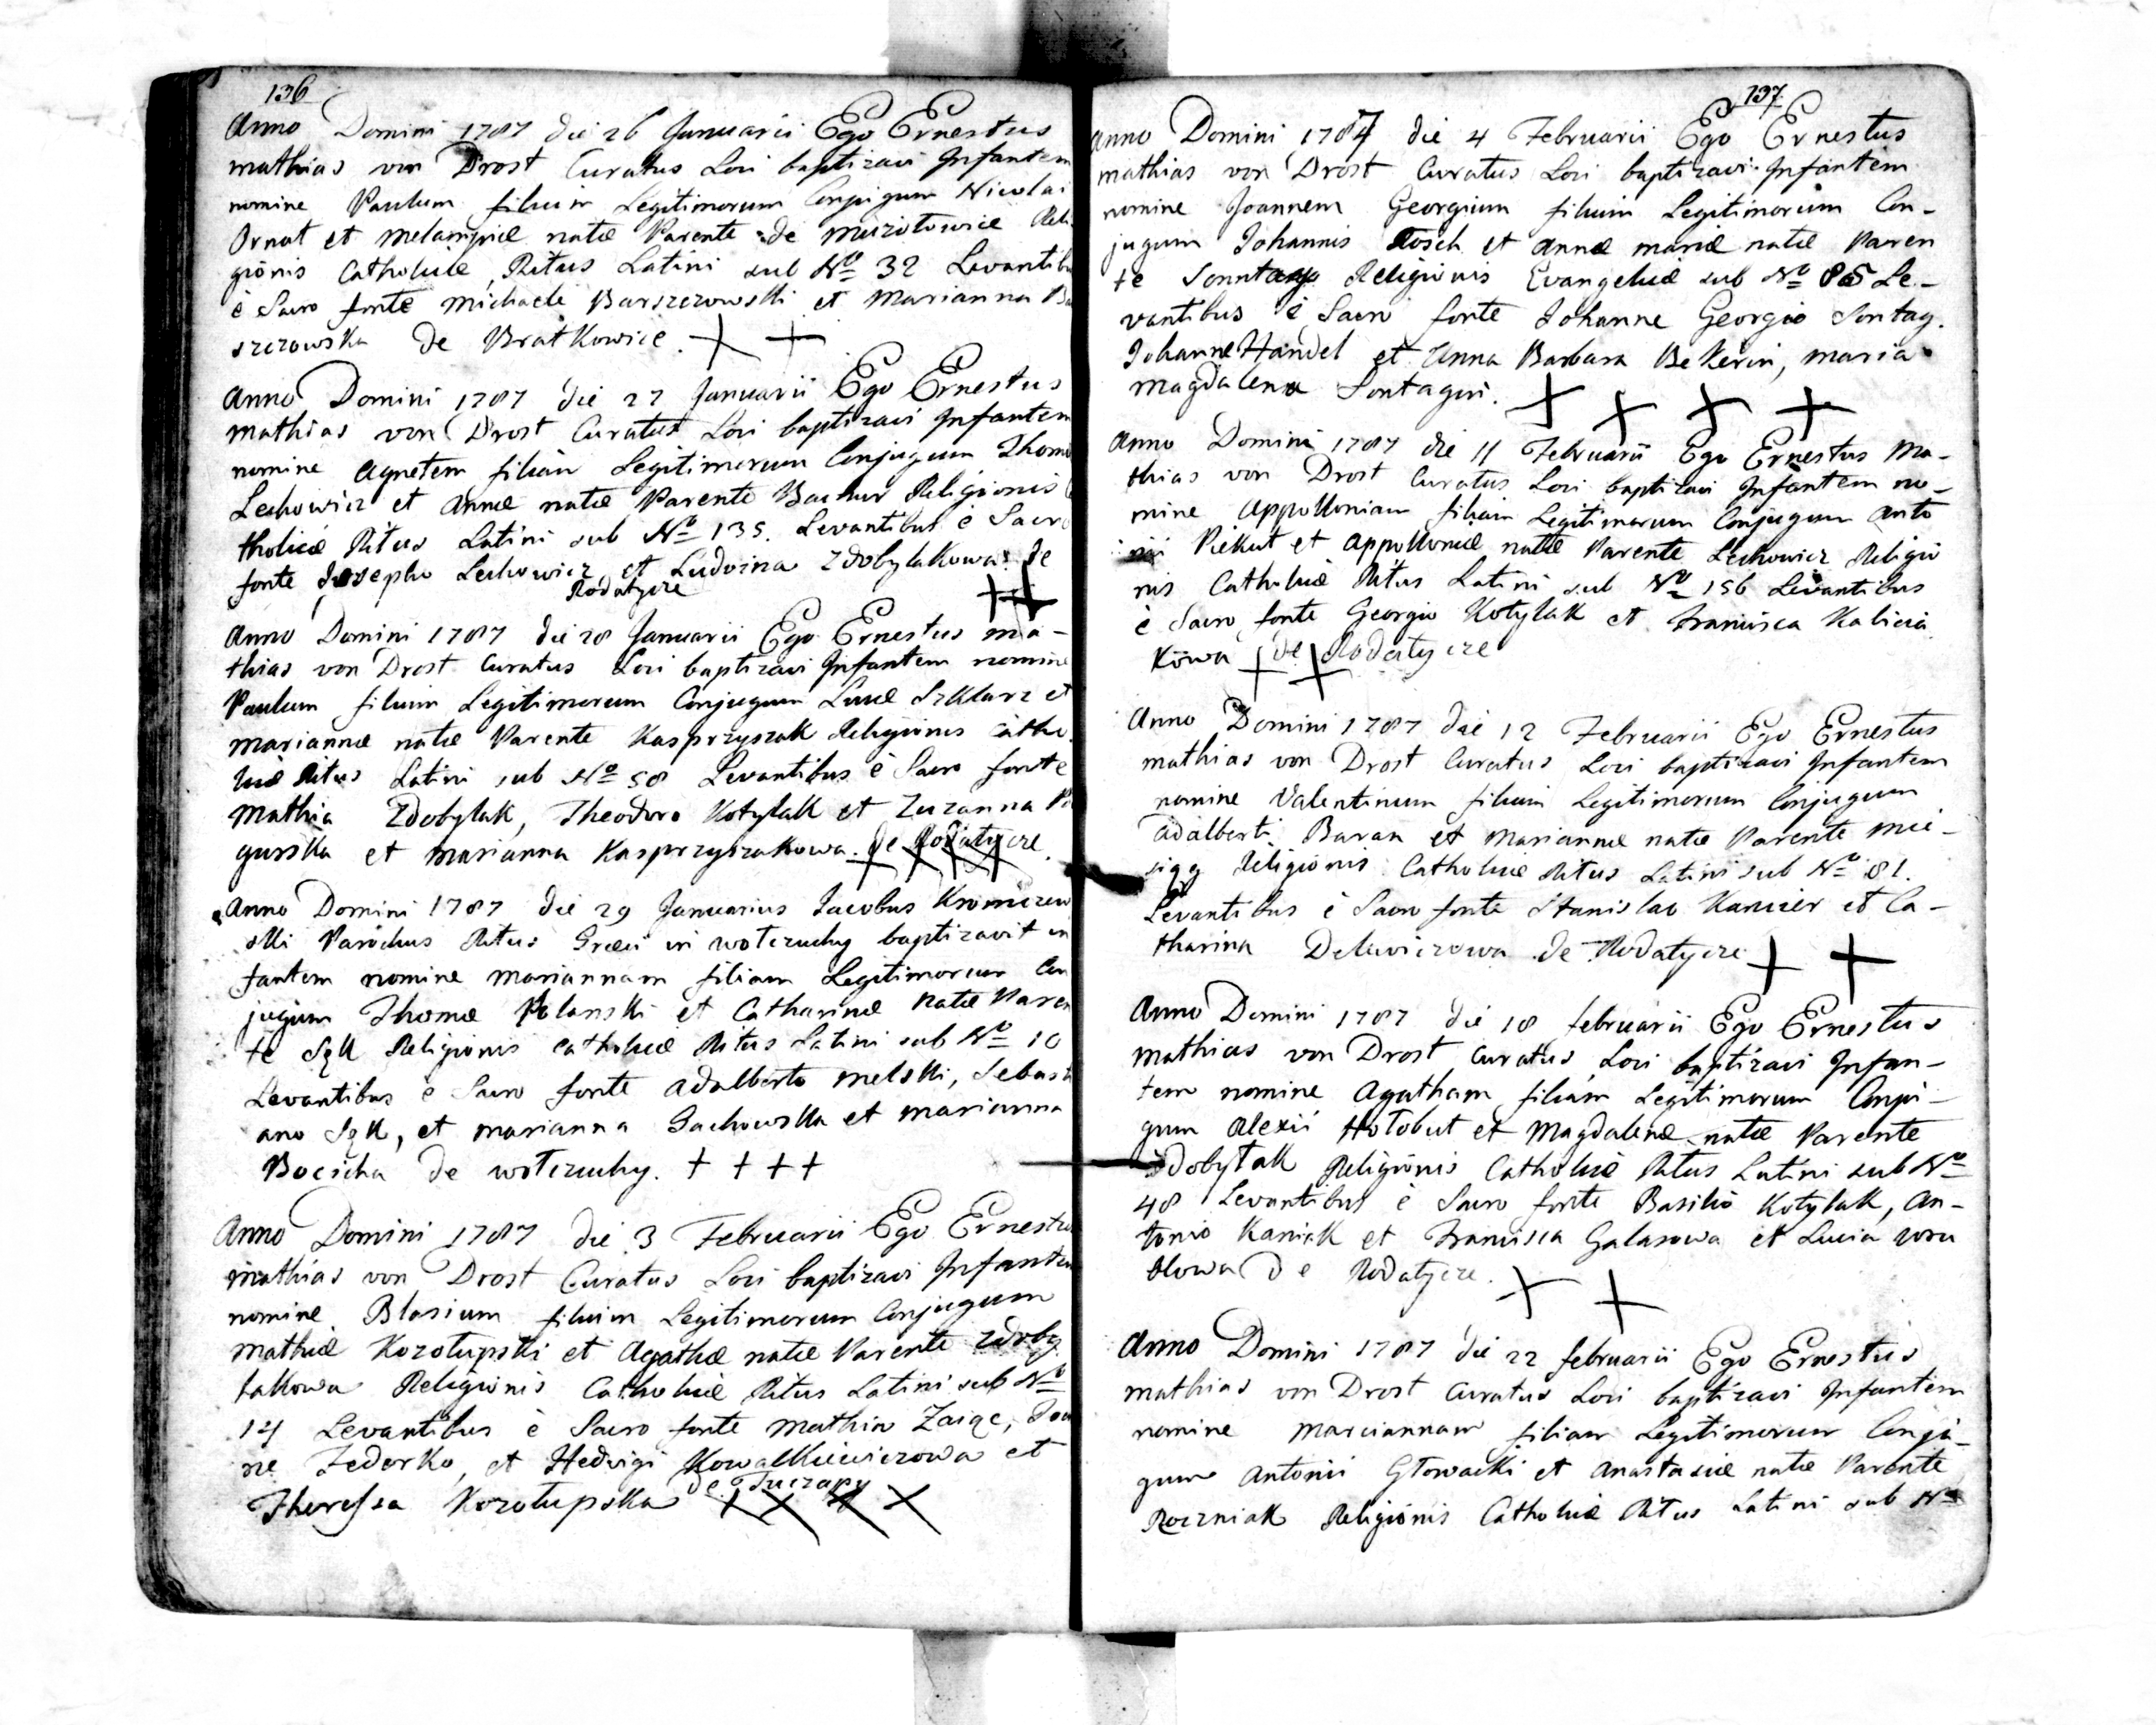 136
Anno Domini 1787 die 26 Januarii Ego Ernestus
mathias von Drost Curatus Loci baptizavi Infantem
nomine Paulum filium Legitimorum Conjugum Nicolai
Ornat et melampiæ natæ Parente de murotowice Reli
gionis Catholicæ, Ritus Latini sub No 32 Levantib
è Sacro fonte michaele Barszczowski et Marianna Ba
szczowska de Bratkowice.
Anno Domini 1787 die 27 Januarii Ego Ernestus
mathias von Drost Curatus Loci baptizavi Infantem
nomine Agnetem filiam Legitimorum Conjugum Thom
Lechowicz et Annæ natæ Parente Religionis
tholicæ Ritus Latini sub No 135. Levantibus è Sacro
fonte Josepho Lechowicz et Ludvina Zdobylakowa de
Rodatycze
Anno Domini 1787 die 28 Januarii Ego Ernestus ma-
thias von Drost Curatus Loci baptizavi Infantem nomine
Paulum filium Legitimorum Conjugum Lucæ Szklarz et
mariannæ natæ Parente Kasprzyszak Religionis Catho
licæ Ritus Latini sub No 58 Levantibus è Sacro fonte
Mathia Zdobylak, Theodoro Kotylak et Zuzanna
gurska et marianna Kasprzyszakowa de Rodatycze.
Anno Domini 1787 die 29 Januarius Jacobus
ski Parochus Ritus Græci in wolczuchy baptizavit in
fantem nomine mariannam filiam Legitimorum Con
jugum Thomæ Polanski et Catharinæ natæ Paren
te Sęk Religionis catholicæ Ritus Latini sub No 10
Levantibus è Sacro fonte adalberto melski, Sebasti
ano Sęk, et marianna Gachowska et marianna
Bocicha de wolczuchy. + + + +
Anno Domini 1787 die 3 Februarii Ego Ernestu
mathias von Drost Curatus Loci baptizavi Infante
nomine Blasium filium Legitimorum Conjugum
mathiæ Korolupski et Agathæ natæ Parente zdoby
lakowa Religionis Catholicæ Ritus Latini sub No
14 Levantibus è Sacro fonte Mathia Zaiąc, Joa
ne Fedorko, et Hedvigi Kowalkiewiczowa et
Theressa Korolupska de Tuczapy
137
Anno Domini 1787 die 4 Februarii Ego Ernestus
mathias von Drost Curatus Loci baptizavi Infantem
nomine Joannem Georgium filium Legitimorum Con-
jugum Johannis Rosch et Annæ mariæ natæ Paren
te Sonntag Religionis Evangelicæ sub No 85 Le-
vantibus è Sacro fonte Johanne Georgio Sontag.
Johanne Handel et Anna Barbara Bekerin, maria
magdalena Sontagin.
Anno Domini 1787 die 11 Februarii Ego Ernestus Ma-
thias von Drost Curatus Loci baptizavi Infantem no-
mine Appolloniam filiam Legitimorum Conjugum Anto
nii Piekut et Appolloniæ natæ Parente Lechowicz Religio
nis Catholicæ Ritus Latini sub No 156 Levantibus
è Sacro fonte Georgio Kotylak et Francisca Kalicia
kowa de Rodatycze
Anno Domini 1787 die 12 Februarii Ego Ernestus
mathias von Drost Curatus Loci baptizavi Infantem
nomine Valentinum filium Legitimorum Conjugum
adalberti Baran et mariannæ natæ Parente mie-
siąg Religionis Catholicæ Ritus Latini sub No 81.
Levantibus è Sacro fonte Stanislao Kanczer et Ca-
tharina Delawiczowa de Rodatycze
Anno Domini 1787 die 18 februarii Ego Ernestus
mathias von Drost Curatus Loci baptizavi Infan-
tem nomine Agatham filiam Legitimorum Conju-
gum Alexii Holobut et Magdalenæ natæ Parente
Zdobylak Religionis Catholicæ Ritus Latini sub No
48 Levantibus è Sacro fonte Basilio Kotylak, An-
tonio Kaniak et Francisca Galasowa et Lucia woru
Howa de Rodatycze.
Anno Domini 1787 die 22 februarii Ego Ernestus
mathias von Drost Curatus Loci baptizavi Infantem
nomine Mariannam filiam Legitimorum Conju-
gum Antonii Głowacki et Anastasiæ natæ Parente
Roczniak Religionis Catholicæ Ritus Latini sub No